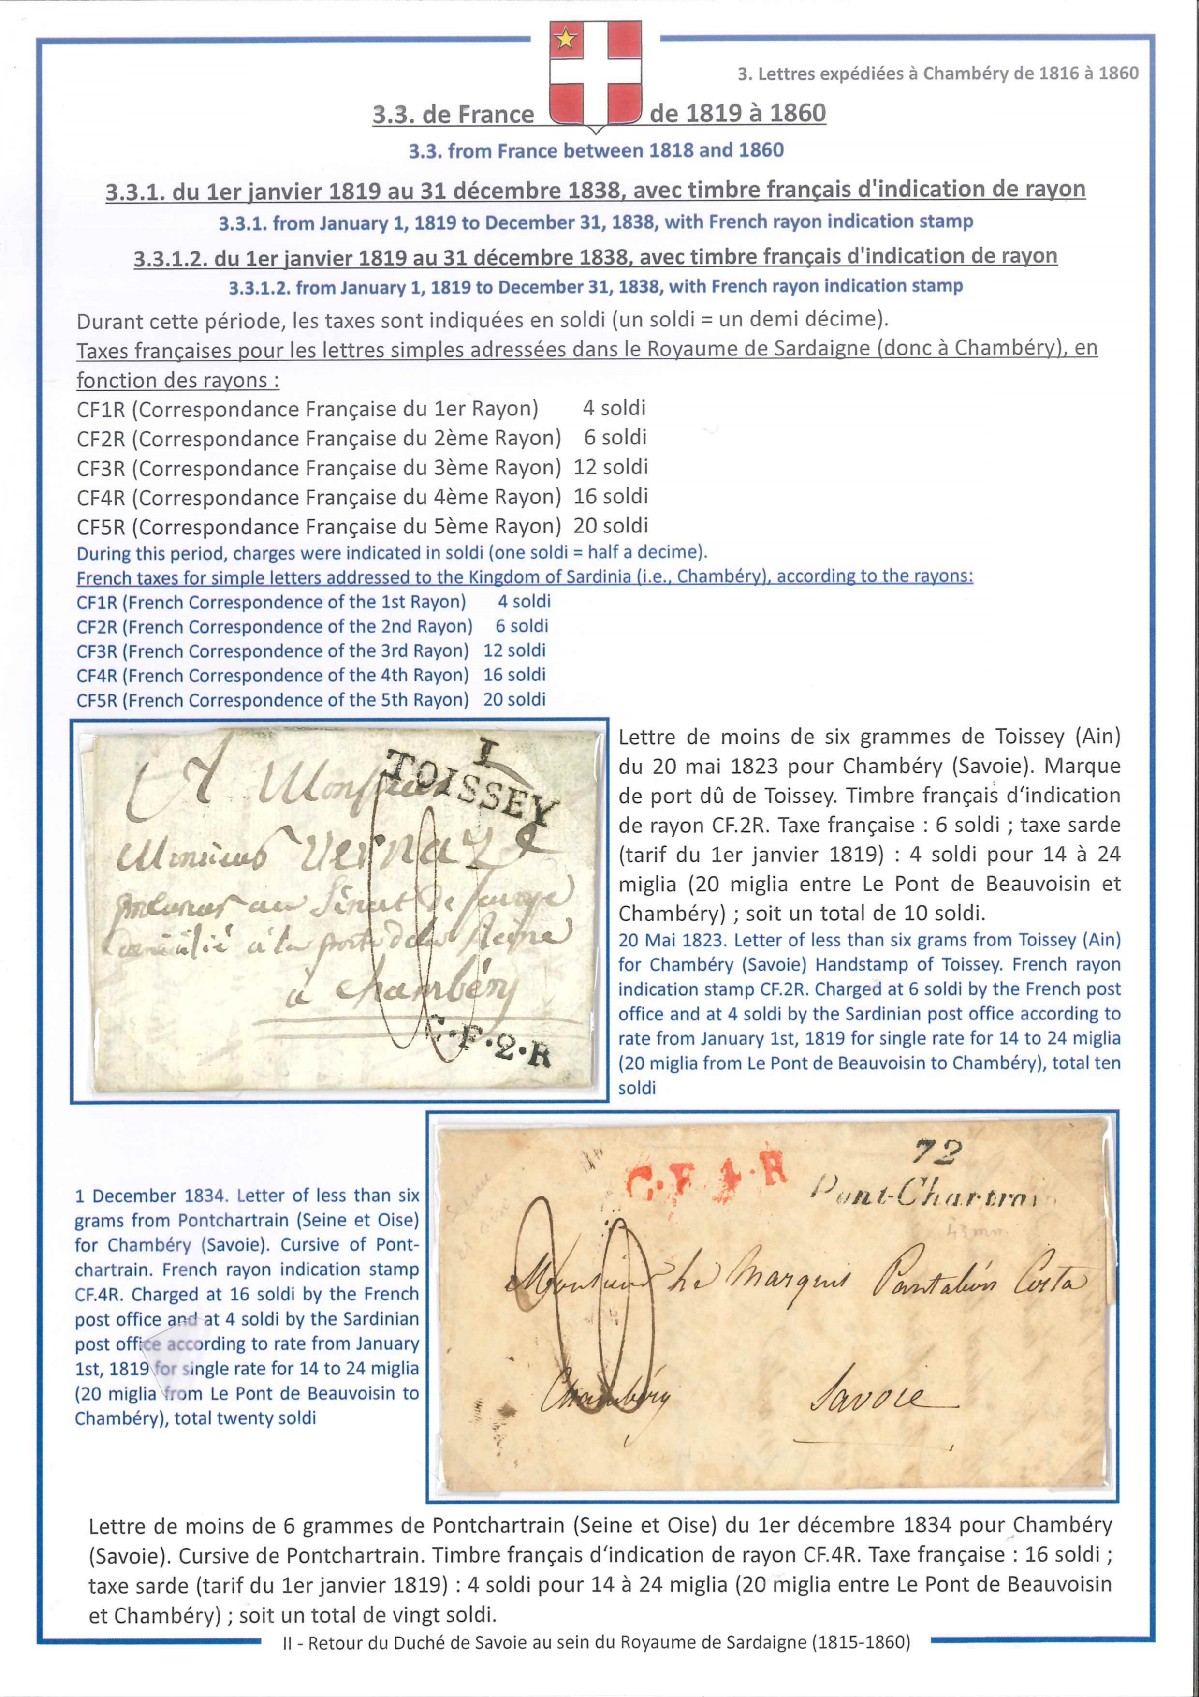 3. Lettres expédiées à Chambéry de 1816 à 1860
3.3. de France de 1819 à 1860
3.3. from France between 1818 and 1860
3.3.1. du 1er janvier 1819 au 31 décembre 1838, avec timbre français d'indication de rayon
3.3.1. from January 1, 1819 to December 31, 1838, with French rayon indication stamp
3.3.1.2. du 1er janvier 1819 au 31 décembre 1838, avec timbre français d'indication de rayon
3.3.1.2. from January 1, 1819 to December 31, 1838, with French rayon indication stamp
Durant cette période, les taxes sont indiquées en soldi (un soldi = un demi décime).
Taxes françaises pour les lettres simples adressées dans le Royaume de Sardaigne (donc à Chambéry), en
fonction des rayons :
CF1R (Correspondance Française du 1er Rayon) 4 soldi
CF2R (Correspondance Française du 2ème Rayon) 6 soldi
CF3R (Correspondance Française du 3ème Rayon) 12 soldi
CF4R (Correspondance Française du 4ème Rayon) 16 soldi
CF5R (Correspondance Française du 5ème Rayon) 20 soldi
During this period, charges were indicated in soldi (one soldi = half a decime).
French taxes for simple letters addressed to the Kingdom of Sardinia (i.e., Chambéry), according to the rayons:
CF1R (French Correspondence of the 1st Rayon) 4 soldi
CF2R (French Correspondence of the 2nd Rayon) 6 soldi
CF3R (French Correspondence of the 3rd Rayon) 12 soldi
CF4R (French Correspondence of the 4th Rayon) 16 soldi
CF5R (French Correspondence of the 5th Rayon) 20 soldi
1
TOISSEY
A Monsieur
Monsieur Vernaz
au Sénat de
à la porte de la Reine
à Chambéry
C.F.2.R
Lettre de moins de six grammes de Toissey (Ain)
du 20 mai 1823 pour Chambéry (Savoie). Marque
de port dû de Toissey. Timbre français d'indication
de rayon CF.2R. Taxe française : 6 soldi ; taxe sarde
(tarif du 1er janvier 1819) : 4 soldi pour 14 à 24
miglia (20 miglia entre Le Pont de Beauvoisin et
Chambéry) ; soit un total de 10 soldi.
20 Mai 1823. Letter of less than six grams from Toissey (Ain)
for Chambéry (Savoie) Handstamp of Toissey. French rayon
indication stamp CF.2R. Charged at 6 soldi by the French post
office and at 4 soldi by the Sardinian post office according to
rate from January 1st, 1819 for single rate for 14 to 24 miglia
(20 miglia from Le Pont de Beauvoisin to Chambéry), total ten
soldi
1 December 1834. Letter of less than six
grams from Pontchartrain (Seine et Oise)
for Chambéry (Savoie). Cursive of Pont-
chartrain. French rayon indication stamp
CF.4R. Charged at 16 soldi by the French
post office and at 4 soldi by the Sardinian
post office according to rate from January
1st, 1819 for single rate for 14 to 24 miglia
(20 miglia from Le Pont de Beauvoisin to
Chambéry), total twenty soldi
72
Pont-Chartrain
C.F.4.R
43 mm
Monsieur Le Marquis Pantaléon Costa
Chambéry
Savoie
Lettre de moins de 6 grammes de Pontchartrain (Seine et Oise) du 1er décembre 1834 pour Chambéry
(Savoie). Cursive de Pontchartrain. Timbre français d'indication de rayon CF.4R. Taxe française : 16 soldi ;
taxe sarde (tarif du 1er janvier 1819) : 4 soldi pour 14 à 24 miglia (20 miglia entre Le Pont de Beauvoisin
et Chambéry) ; soit un total de vingt soldi.
II - Retour du Duché de Savoie au sein du Royaume de Sardaigne (1815-1860)